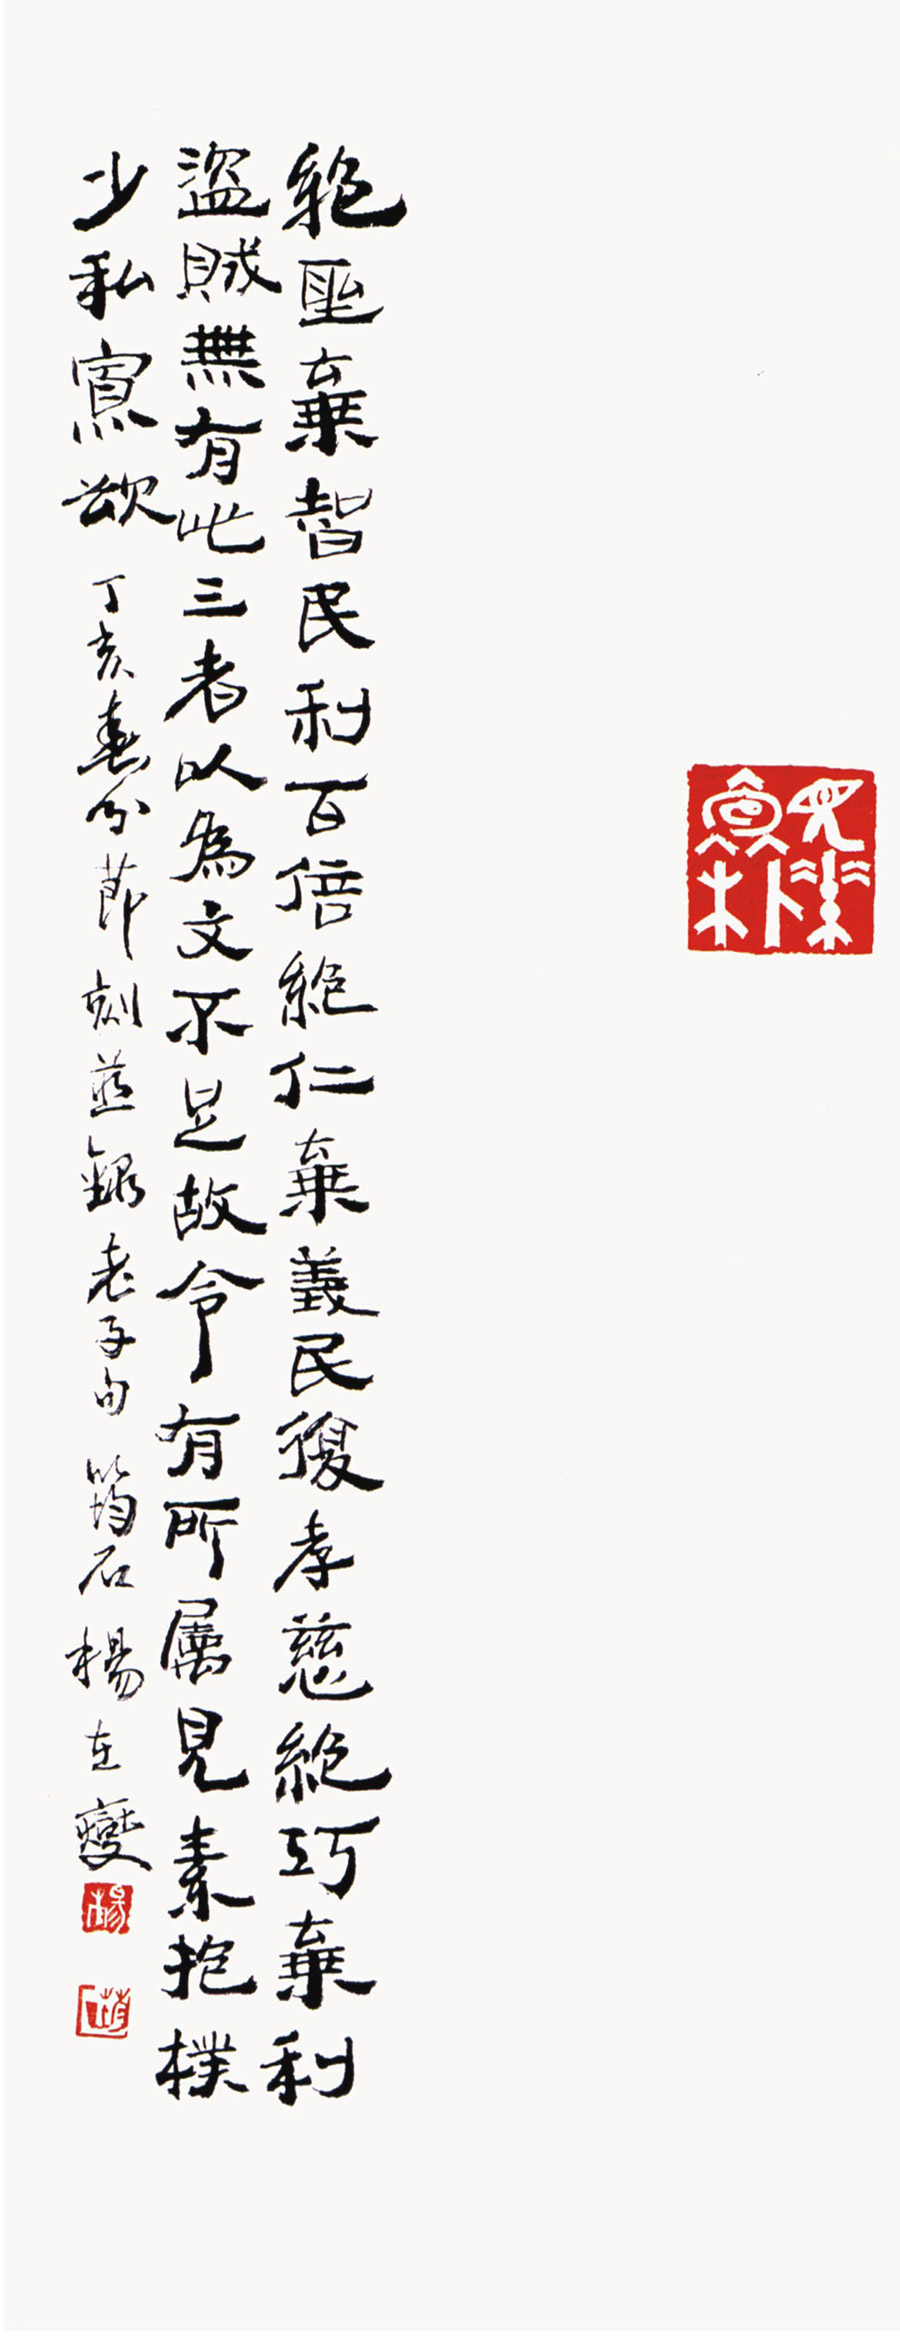 絕聖棄智民利百倍絕仁棄義民復孝慈絕巧棄利
盜賊無有此三者以為文不足故令有所属見素抱樸
少私寡欲 丁亥春分節刻並錄老子句 筠石楊在燮
見素
抱朴
楊